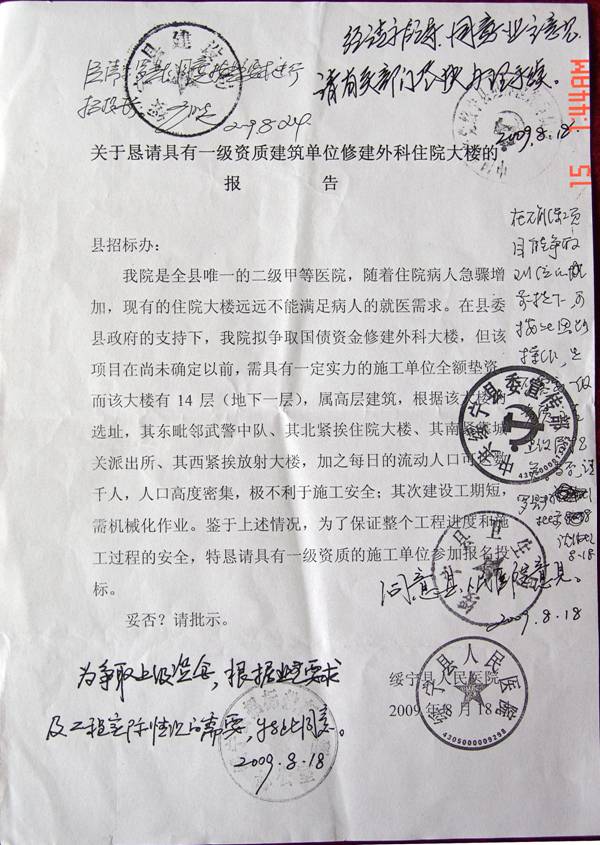 经请示领导,同意业主意见
请有关部门尽快办理手续。
2009.8.18
关于恳请具有一级资质建筑单位修建外科住院大楼的
报 告
县招标办:
我院是全县唯一的二级甲等医院，随着住院病人急骤增
加，现有的住院大楼远远不能满足病人的就医需求。在县委
县政府的支持下，我院拟争取国债资金修建外科大楼，但该
项目在尚未确定以前，需具有一定实力的施工单位全额垫资，
而该大楼有 14 层（地下一层），属高层建筑，根据该大楼的
选址，其东毗邻武警中队、其北紧挨住院大楼、其南紧靠城
关派出所、其西紧挨放射大楼，加之每日的流动人口可达数
千人，人口高度密集，极不利于施工安全；其次建设工期短，
需机械化作业。鉴于上述情况，为了保证整个工程进度和施
工过程的安全，特恳请具有一级资质的施工单位参加报名投
标。
妥否？请批示。
中共绥宁县委宣传部
同意县人民医院意见。
2009.8.18
绥宁县人民医院
2009年8月18日
绥宁县人民医院
4305000009298
为争取上级资金，根据业主要求
及工程实际情况的需要，特此同意。
2009.8.18